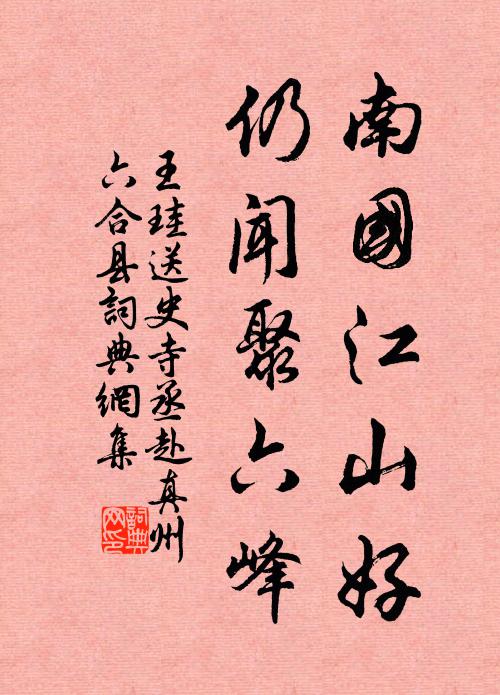 南國江山好
仍聞聚六峰
王珪送史寺丞赴真州
六合县詞典網集
詞典
网印